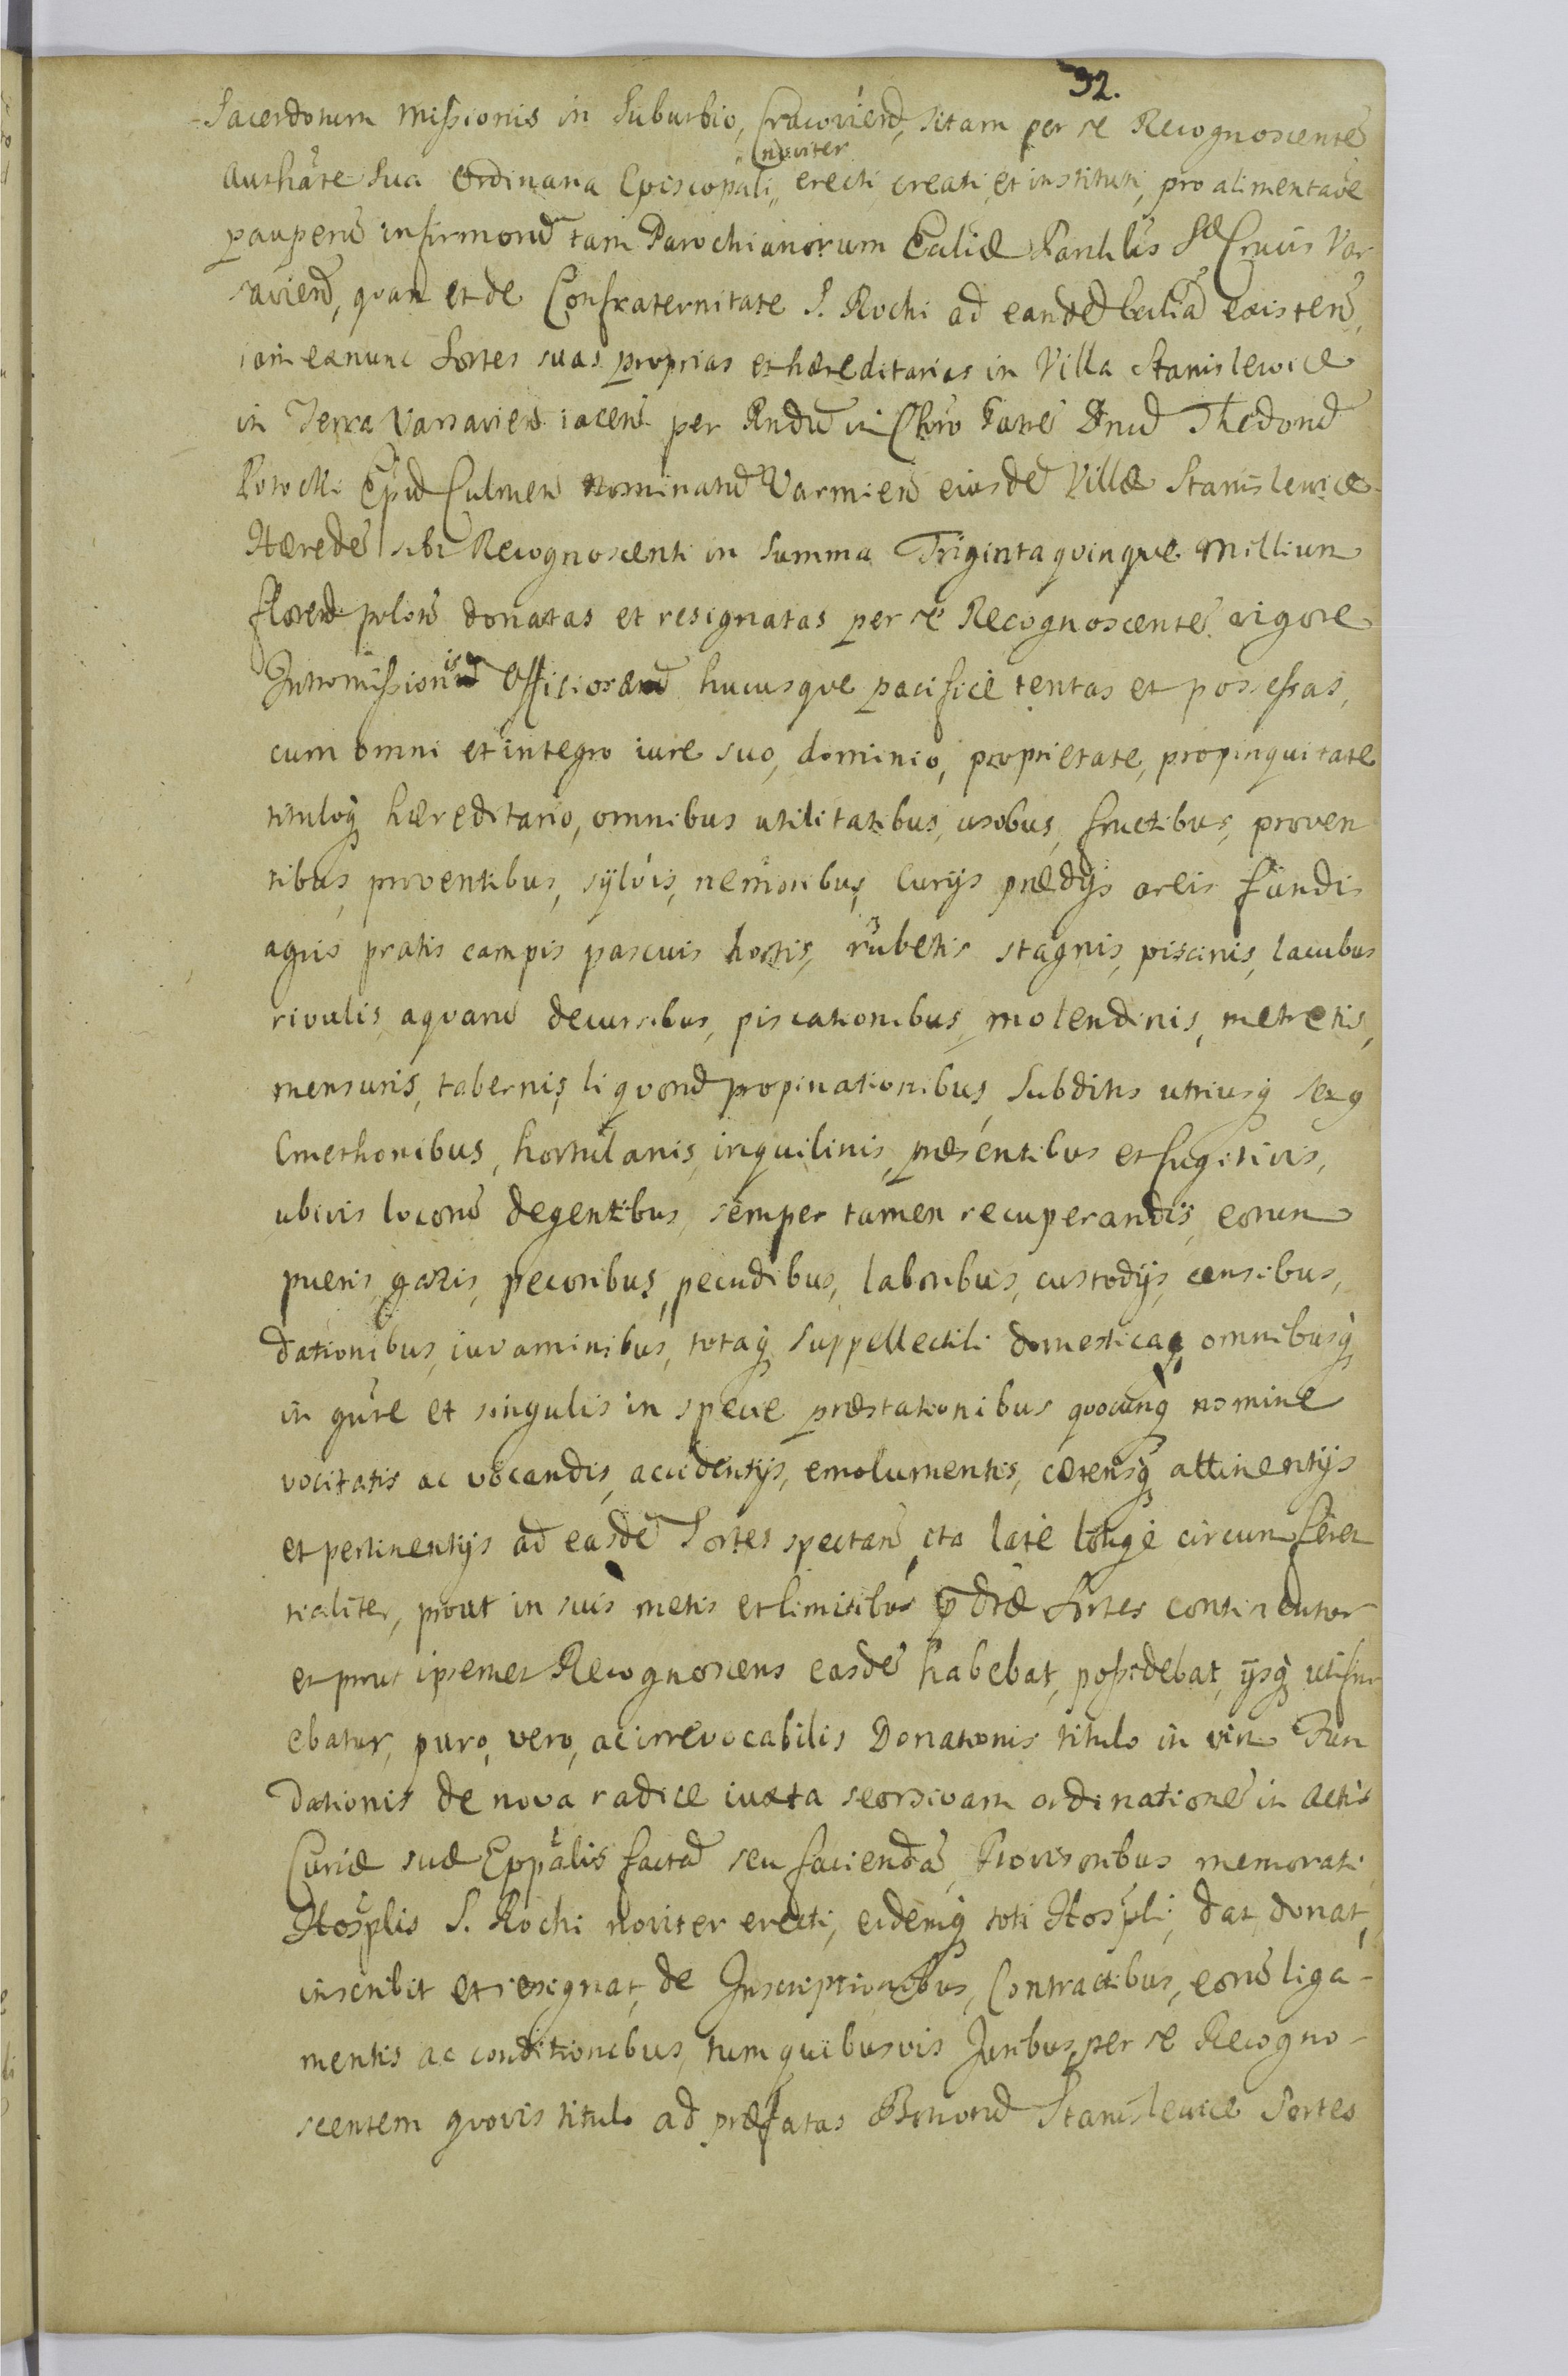 32.
Sacerdotum Missionis in Suburbio, Cracovien̄, sitam per se Recognoscentē
Auth̃āte sua Ordinaria Episcopali, noviter erecti creati et instituti, pro alimentāōe
pauperū infirmorū tam Parochianorum Ecc̃liæ Par̃chlis S̃æ Crucis Var
savien̄, quam et de Confraternitate S. Rochi ad eandē Ecc̃liā existen̄,
iam exnunc Sortes suas proprias et hæreditarias in Villa Stanislewice
in Terra Varsavien̄ iacen̄ per Rn̄dū in Chr̄o Patrē Dn̄ū Theodorū
Potocki Ep̄ū Culmen̄ Nominatū Varmien̄ eiusdē Villæ Stanislewice
Hæredē sibi Recognoscenti in Summa Triginta quinque Millium
floren̄ polon̄ donatas et resignatas per se Recognoscentē vigore
Intromissionis Officiosæ hucusque pacifice tentas et possessas,
cum omni et integro iure suo, dominio, proprietate, propinquitate
tituloq̄ hæreditario, omnibus utilitatibus, usibus, fructibus, proven
tibus, proventibus, sylvis, nemoribus, curijs prædijs areis fundis
agris pratis campis pascuis hortis, rubetis stagnis, piscinis, lacubus
rivulis, aquarū decursibus, piscationibus, molendinis, metretis,
mensuris, tabernis, liquorū propinationibus, Subditis utriusq̄ sexq
Cmethonibus, hortulanis, inquilinis, præsentibus et fugitivis,
ubivis locorū degentibus, semper tamen recuperandis, eorum
pueris, gazis, pecoribus, pecudibus, laboribus, custodijs, censibus,
dationibus, iuvaminibus, totaq̄ Suppellectili domesticaq, omnibusq̄
in gn̄re et singulis in specie præstationibus quocunq̄ nomine
vocitatis ac vocandis, accidentijs, emolumentis, cæterisq̄ attinentijs
et pertinentijs ad easdē Sortes spectan̄, ita late longe circumferen
tialiter, prout in suis metis et limitibus p̄dīæ Sortes continentur
et prout ipsemet Recognoscens easdē habebat, possidebat, ijsq̄ utifru
ebatur, puro, vero, ac irrevocabilis Donationis titulo in vim Fun
dationis de nova radice iuxta seorsivam ordinationē in Actis
Curiæ suæ Epp̄alis factā seu faciendā, Provisoribus memorati
Hosp̄lis S. Rochi noviter erecti, eidemq̄ toti Hosp̄li, dat, donat,
inscribit et resignat, de Inscriptionibus, Contractibus, eorū liga-
mentis ac conditionibus, tum quibusvis Juribus, per se Recogno-
scentem quovis titulo ad præfatas Bonorū Stanislewice Sortes